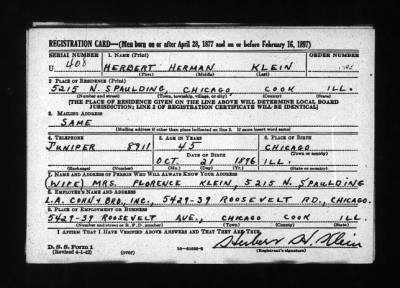 REGISTRATION CARD—(Men born on or after April 28, 1877 and on or before February 16, 1897)
SERIAL NUMBER 1. NAME (Print) ORDER NUMBER
U 408 HERBERT HERMAN KLEIN
(First) (Middle) (Last)
2. PLACE OF RESIDENCE (Print)
5215 N. SPAULDING, CHICAGO COOK ILL.
(Number and street) (Town, township, village, or city) (County) (State)
[THE PLACE OF RESIDENCE GIVEN ON THE LINE ABOVE WILL DETERMINE LOCAL BOARD
JURISDICTION; LINE 2 OF REGISTRATION CERTIFICATE WILL BE IDENTICAL]
3. MAILING ADDRESS
SAME
[Mailing address if other than place indicated on line 2. If same insert word same]
4. TELEPHONE 5. AGE IN YEARS 6. PLACE OF BIRTH
JUNIPER 8911 45 CHICAGO
DATE OF BIRTH (Town or county)
OCT 21 1896 ILL.
(Exchange) (Number) (Mo.) (Day) (Yr.) (State or country)
7. NAME AND ADDRESS OF PERSON WHO WILL ALWAYS KNOW YOUR ADDRESS
(WIFE) MRS. FLORENCE KLEIN, 5215 N. SPAULDING
8. EMPLOYER'S NAME AND ADDRESS
L.A. COHN & BRO., INC., 5429-39 ROOSEVELT RD., CHICAGO.
9. PLACE OF EMPLOYMENT OR BUSINESS
5429-39 ROOSEVELT AVE., CHICAGO COOK ILL.
(Number and street or R.F.D. number) (Town) (County) (State)
I AFFIRM THAT I HAVE VERIFIED ABOVE ANSWERS AND THAT THEY ARE TRUE.
D. S. S. Form 1
(Revised 4-1-42) (over) Herbert H. Klein
(Registrant's signature)